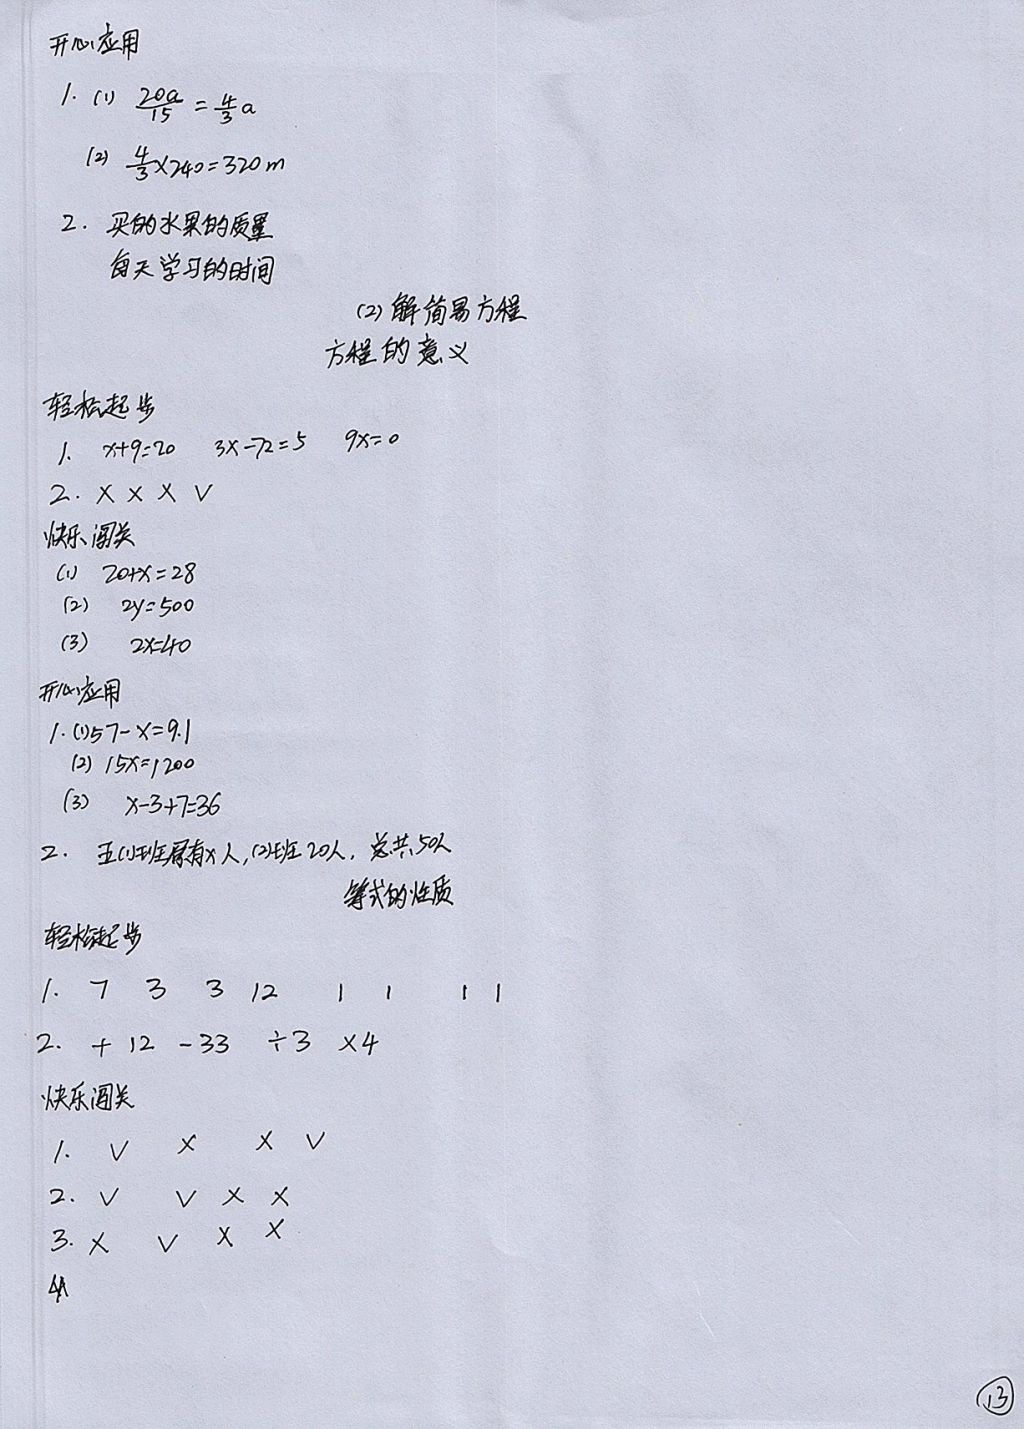 开心应用
1. (1) 20a/15 = 4/3 a
(2) 4/3×240=320m
2. 买的水果的质量
每天学习的时间
(2) 解简易方程
方程的意义
轻松起步
1. x+9=20 3x-72=5 9x=0
2. × × × √
快乐闯关
(1) 20+x=28
(2) 2y=500
(3) 2x=40
开心应用
1. (1) 57-x=9.1
(2) 15x=1200
(3) x-3+7=36
2. 五(1)班原有x人,(2)班20人, 总共50人
等式的性质
轻松起步
1. 7 3 3 12 1 1 1 1
2. + 12 - 33 ÷3 ×4
快乐闯关
1. √ × × √
2. √ √ × ×
3. × √ × ×
13